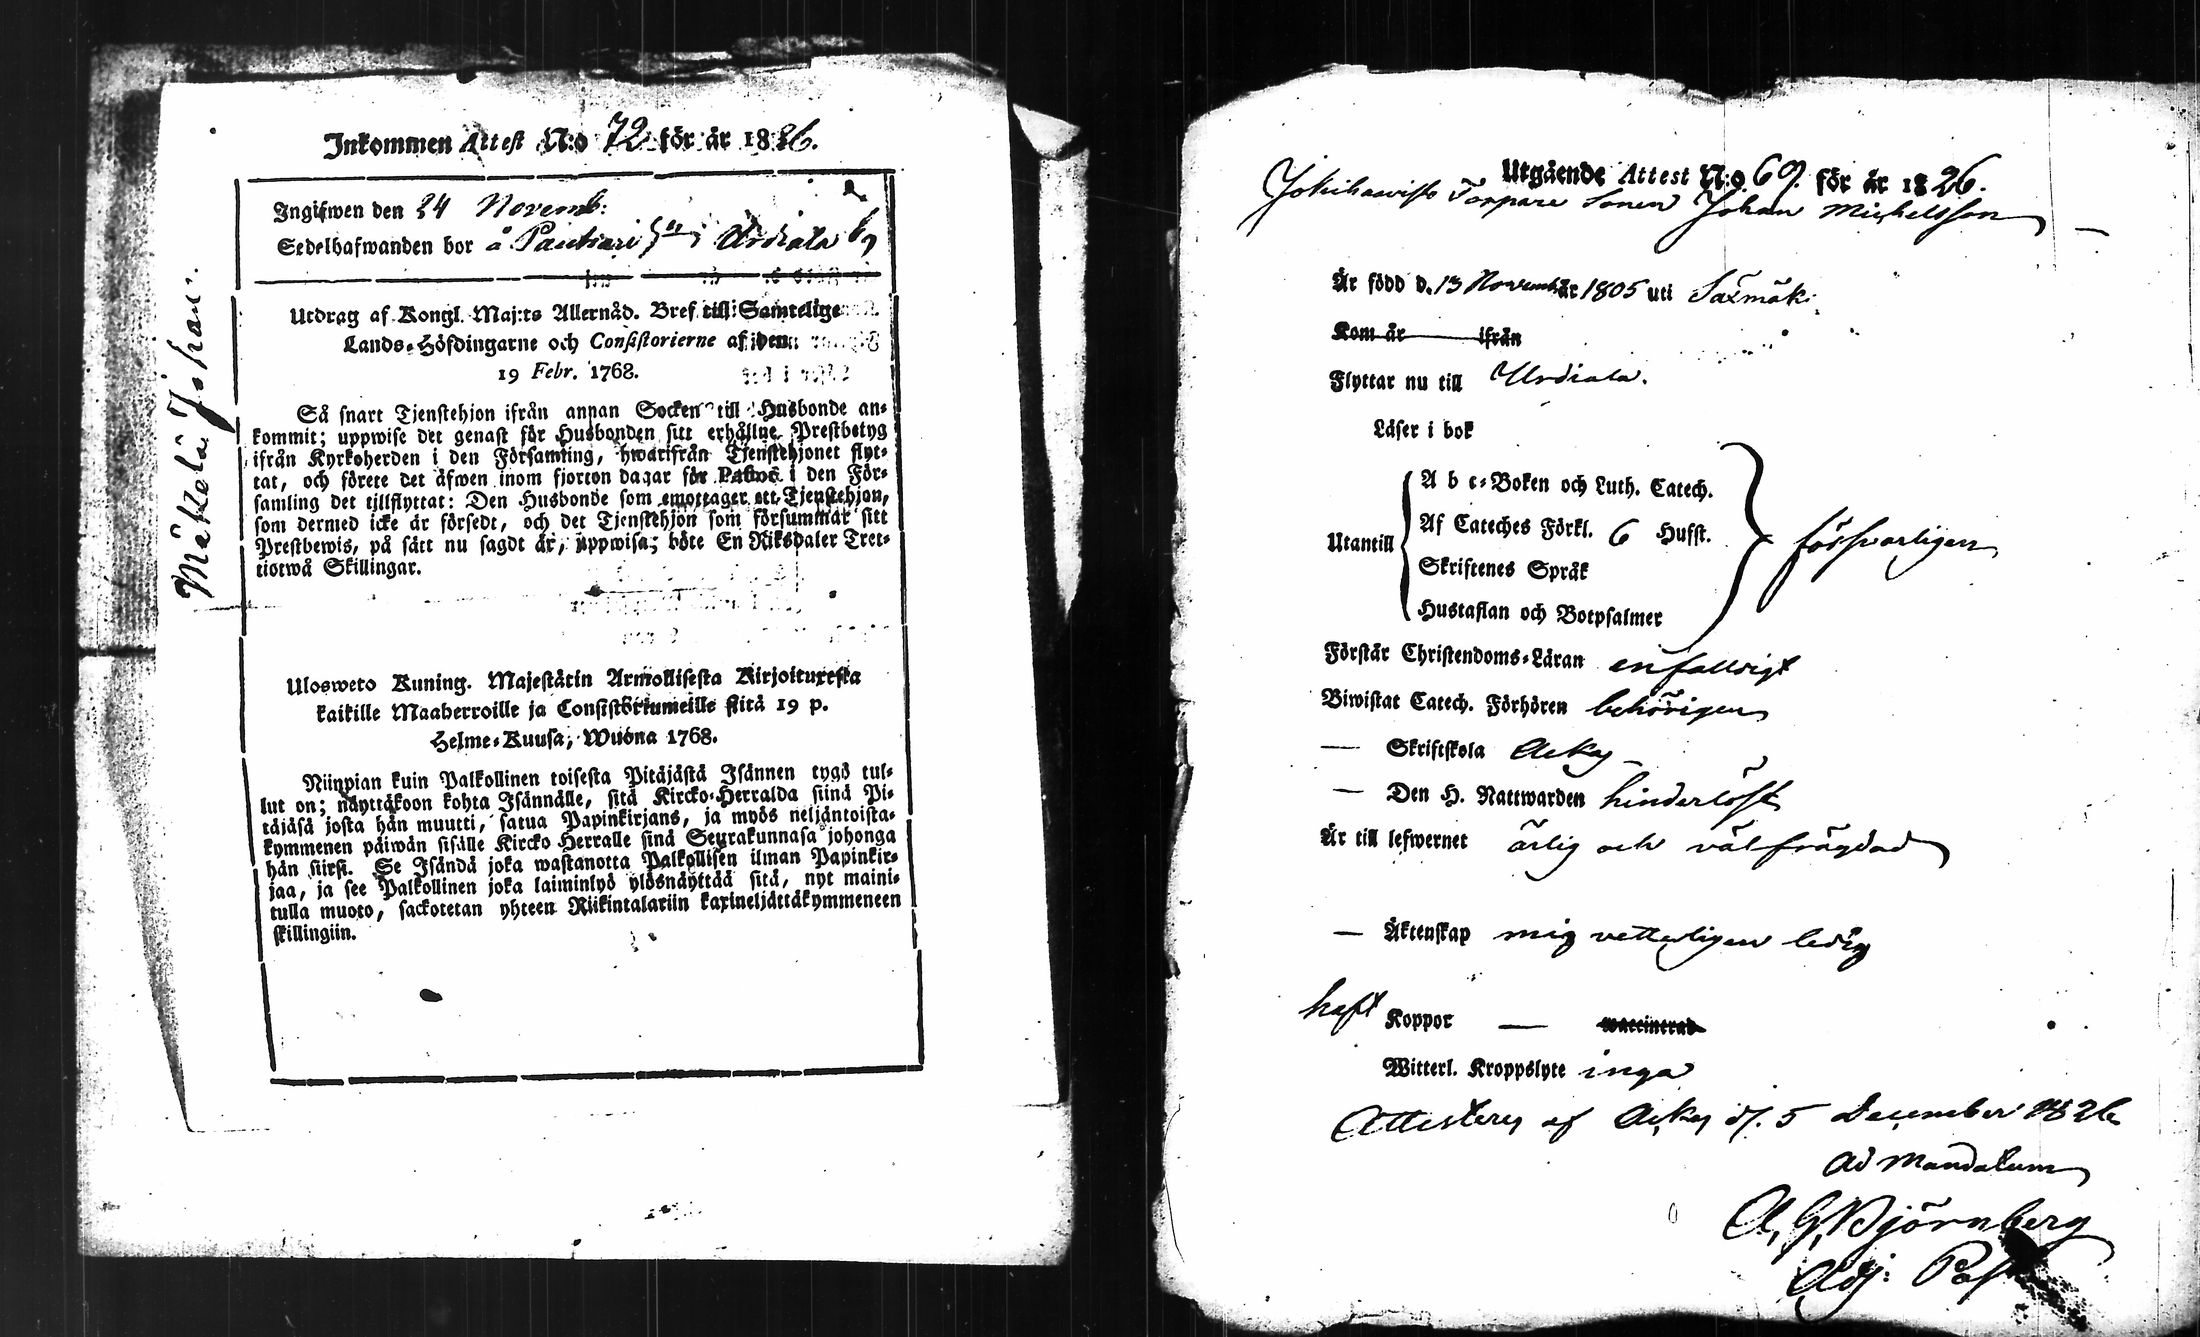 Inkommen Attest N:o 72 för år 1826.
Ingifwen den 24 Novemb:
Sedelhafwanden bor å i Urdiala by
Utdrag af Kongl. Maj:ts Allernåd. Bref till Samtelige
Lands-Höfdingarne och Consistorierne af den
19 Febr. 1768.
Så snart Tjenstehjon ifrån annan Socken till Husbonde an-
kommit; uppwise det genast för Husbonden sitt erhållne Prestbetyg
ifrån Kyrkoherden i den Församling, hwarifrån Tjenstehjonet flyt-
tat, och förete det äfwen inom fjorton dagar för Pastor i den För-
samling det tillflyttat: Den Husbonde som emottager ett Tjenstehjon,
som dermed icke är försedt, och det Tjenstehjon som försummar sitt
Prestbewis, på sätt nu sagdt är, uppwisa; böte En Riksdaler Tret-
tiotwå Skillingar.
Ulosweto Kuning. Majestätin Armollisesta Kirjoituxesta
kaikille Maaherroille ja Consistoriumeille siitä 19 p.
Helme-Kuusa, Wuonna 1768.
Niinpian kuin Palkollinen toisesta Pitäjästä Isännen tygö tul-
lut on; näyttäkoon kohta Isännälle, sitä Kircko-Herralda siinä Pi-
täjäsä josta hän muutti, satua Papinkirjans, ja myös neljäntoista-
kymmenen päiwän sisälle Kircko Herralle sinä Seurakunnasa johonga
hän siirsi. Se Isändä joka wastanotta Palkollisen ilman Papinkir-
jaa, ja see Palkollinen joka laiminlyö ylösnäyttää sitä, nyt maini-
tulla muoto, sackotetan yhteen Riikintalariin kaxineljättäkymmeneen
skillingiin.
Mäkkelä Johan.
Utgående Attest N:o 69. för år 1826.
Torpare Sonen Johan Michelsson
Är född d. 13 Novemb. år 1805 uti Saxmäki
Kom år ifrån
Flyttar nu till Urdiala.
Läser i bok
Utantill
A b c-Boken och Luth. Catech.
Af Cateches Förkl. 6 Hufst.
Skriftenes Språk
Hustaflan och Botpsalmer
försvarligen
Förstår Christendoms-Läran enfalldigt
Biwistat Catech. Förhören behörigen
— Skriftskola Acky
— Den H. Nattwarden hinderlöst
Är till lefwernet ärlig och välfrägdad
— Äktenskap mig vetterligen ledig
haft Koppor — waccinerad
Witterl. Kroppslyte inga
Attesteras af Acky d. 5 December 1826
ad mandatum
A, G, Björnberg
Adj: Past